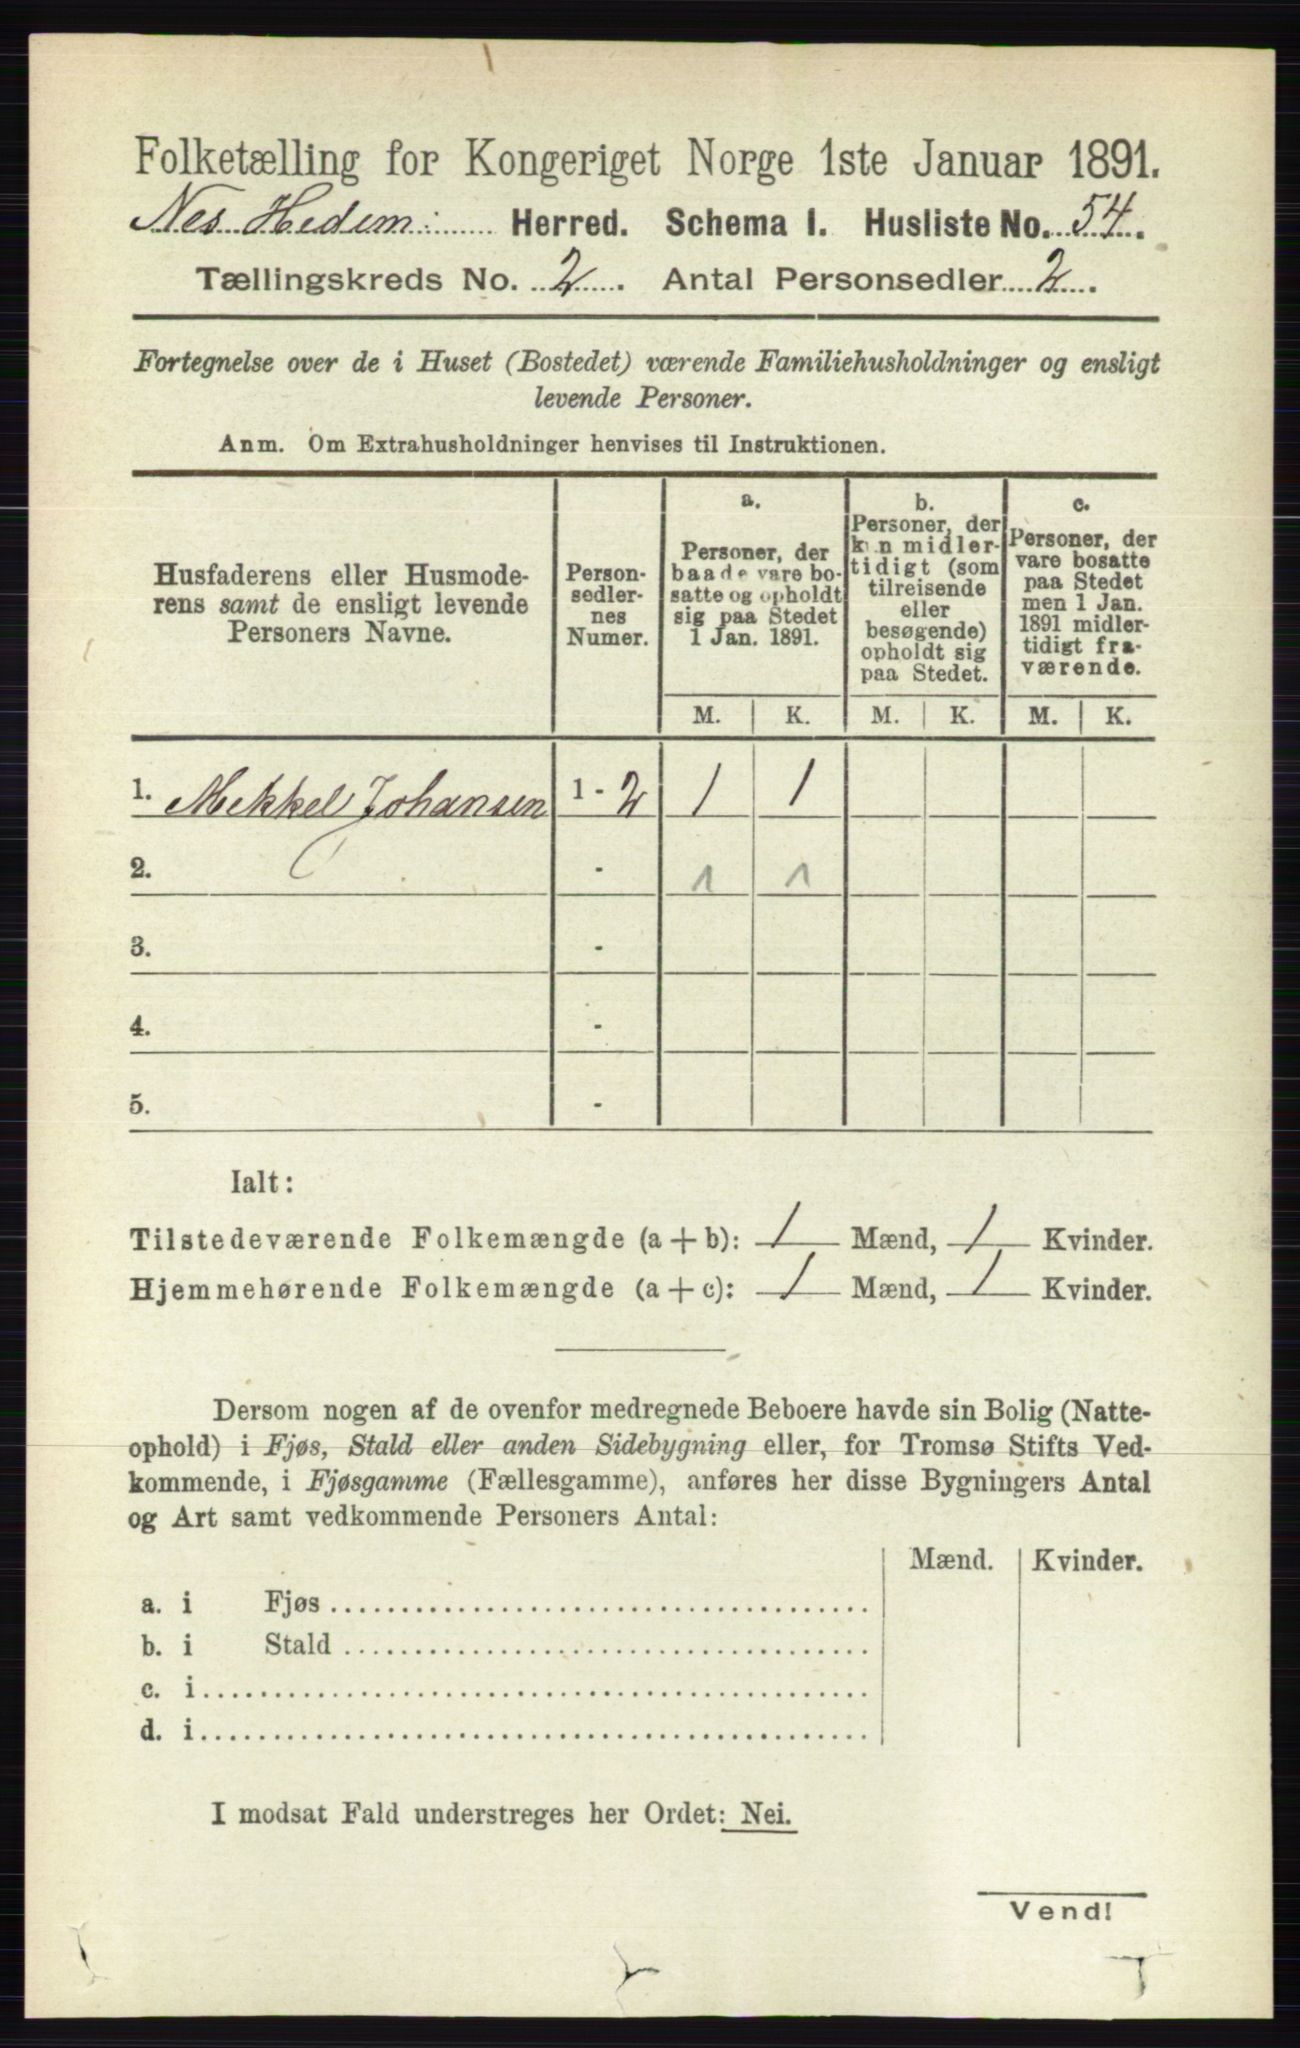 Folketælling for Kongeriget Norge 1ste Januar 1891.
Nes Hedem: Herred. Schema I. Husliste No. 54.
Tællingskreds No. 2. Antal Personsedler 2.
Fortegnelse over de i Huset (Bostedet) værende Familiehusholdninger og ensligt
levende Personer.
Anm. Om Extrahusholdninger henvises til Instruktionen.
Husfaderens eller Husmode-
rens samt de ensligt levende
Personers Navne.
Person-
sedler-
nes
Numer.
a.
Personer, der
baade vare bo-
satte og opholdt
sig paa Stedet
1 Jan. 1891.
b.
Personer, der
kun midler-
tidigt (som
tilreisende
eller
besøgende)
opholdt sig
paa Stedet.
c.
Personer, der
vare bosatte
paa Stedet
men 1 Jan.
1891 midler-
tidigt fra-
værende.
M. K. M. K. M. K.
1. Mekkel Johansen 1 - 2 1 1
2. - 1 1
3. -
4. -
5. -
Ialt:
Tilstedeværende Folkemængde (a + b): 1 Mænd, 1 Kvinder.
Hjemmehørende Folkemængde (a + c): 1 Mænd, 1 Kvinder.
Dersom nogen af de ovenfor medregnede Beboere havde sin Bolig (Natte-
ophold) i Fjøs, Stald eller anden Sidebygning eller, for Tromsø Stifts Ved-
kommende, i Fjøsgamme (Fællesgamme), anføres her disse Bygningers Antal
og Art samt vedkommende Personers Antal:
Mænd. Kvinder.
a. i Fjøs
b. i Stald
c. i
d. i
I modsat Fald understreges her Ordet: Nei.
Vend!